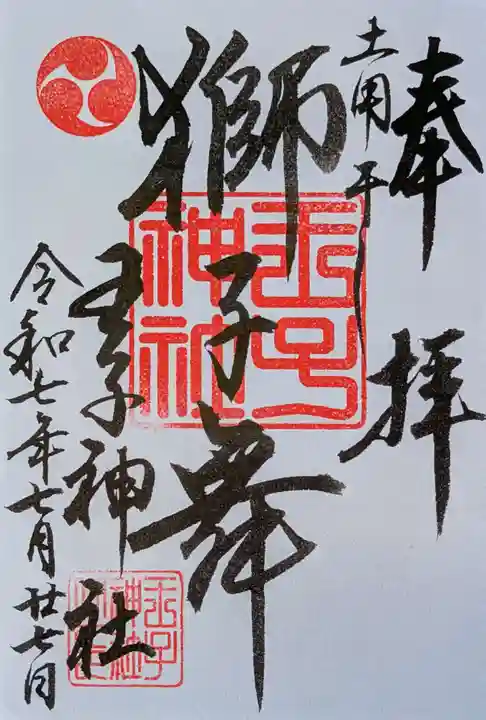 奉拝
土用干し
獅子舞
王子
神社
王子神社
王子
神社
之印
令和七年七月廿七日